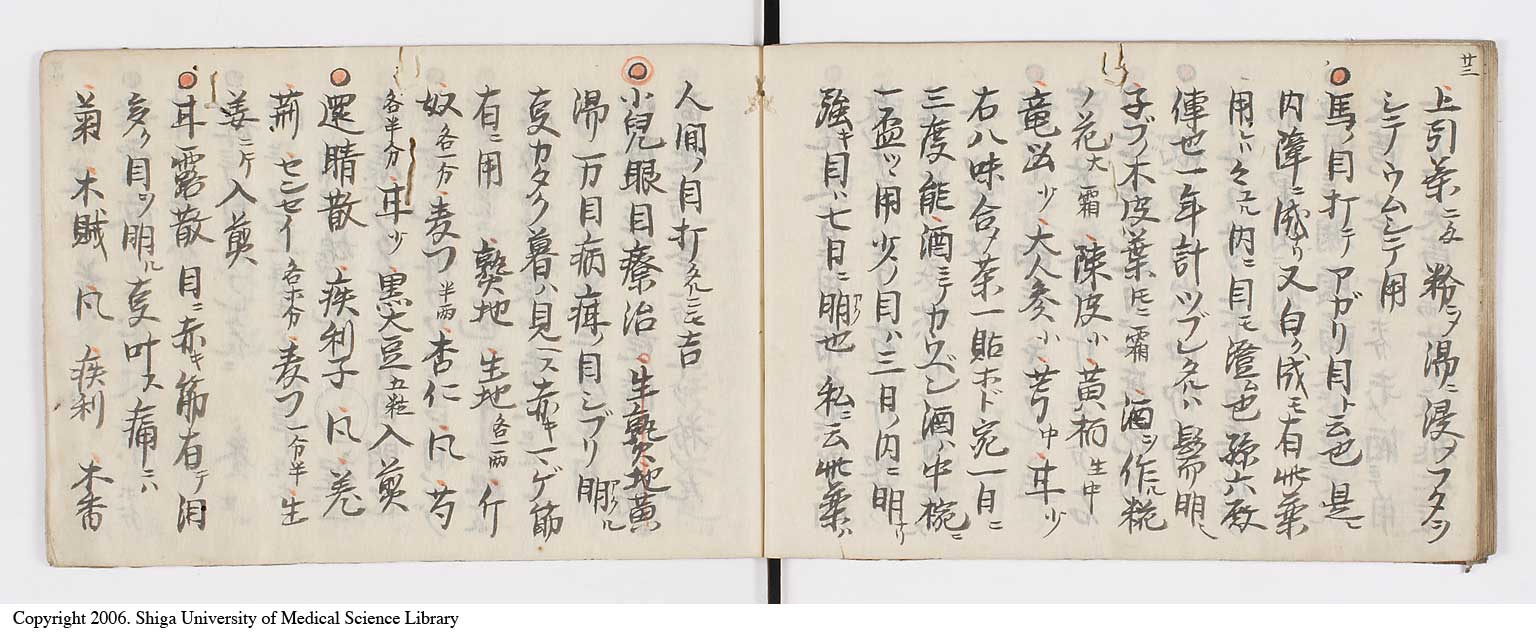 廿三
上引茶ニ五 粉ニシメ湯ニ浸メフタヲ
シテノウムシテ用
馬ノ目打テアガリ目ト云也 是ニ
内障ニ成リ又白ク成モ有 此薬
用レハ 内ニ目モ澄ム也 孫六殿
傳也 一年計ツブレタルハ 即明
子ブノ木皮葉 霜 酒ヲ作ル糀
ノ花大 霜 陳皮小 黄栢生中
竜 少 大人参小 芎中 甘少
右八味合ノ茶一貼ホド宛一日ニ
三度能酒ニテカウベシ 酒ハ中椀ニ
一盃ツヽ用 少ノ目ハ三日ノ内ニ明リ
強キ目ハ七日ニ明也 私ニ云此薬ハ
人間ノ目打タルニモ吉
小兒眼目療治 生熟地黄
湯 万目病 目シブリ明ル
叓カタク暮ハ見ヘス赤キ ゲ筋
有ニ用 熟地 生地各一両 斤
奴各一分 麦フ半両 杏仁 凡 芍
各半分 甘少 黒大豆五粒 入煎
還晴散 疾利子 凡 羌
荊 センセイ各半分 麦フ一分半 生
姜二斤 入煎
耳露散 目ニ赤キ筋有テ泪
多ク目ヲ明ル叓叶ス痛ニハ
菊 木賊 凡 疾利 木香
Copyright 2006. Shiga University of Medical Science Library